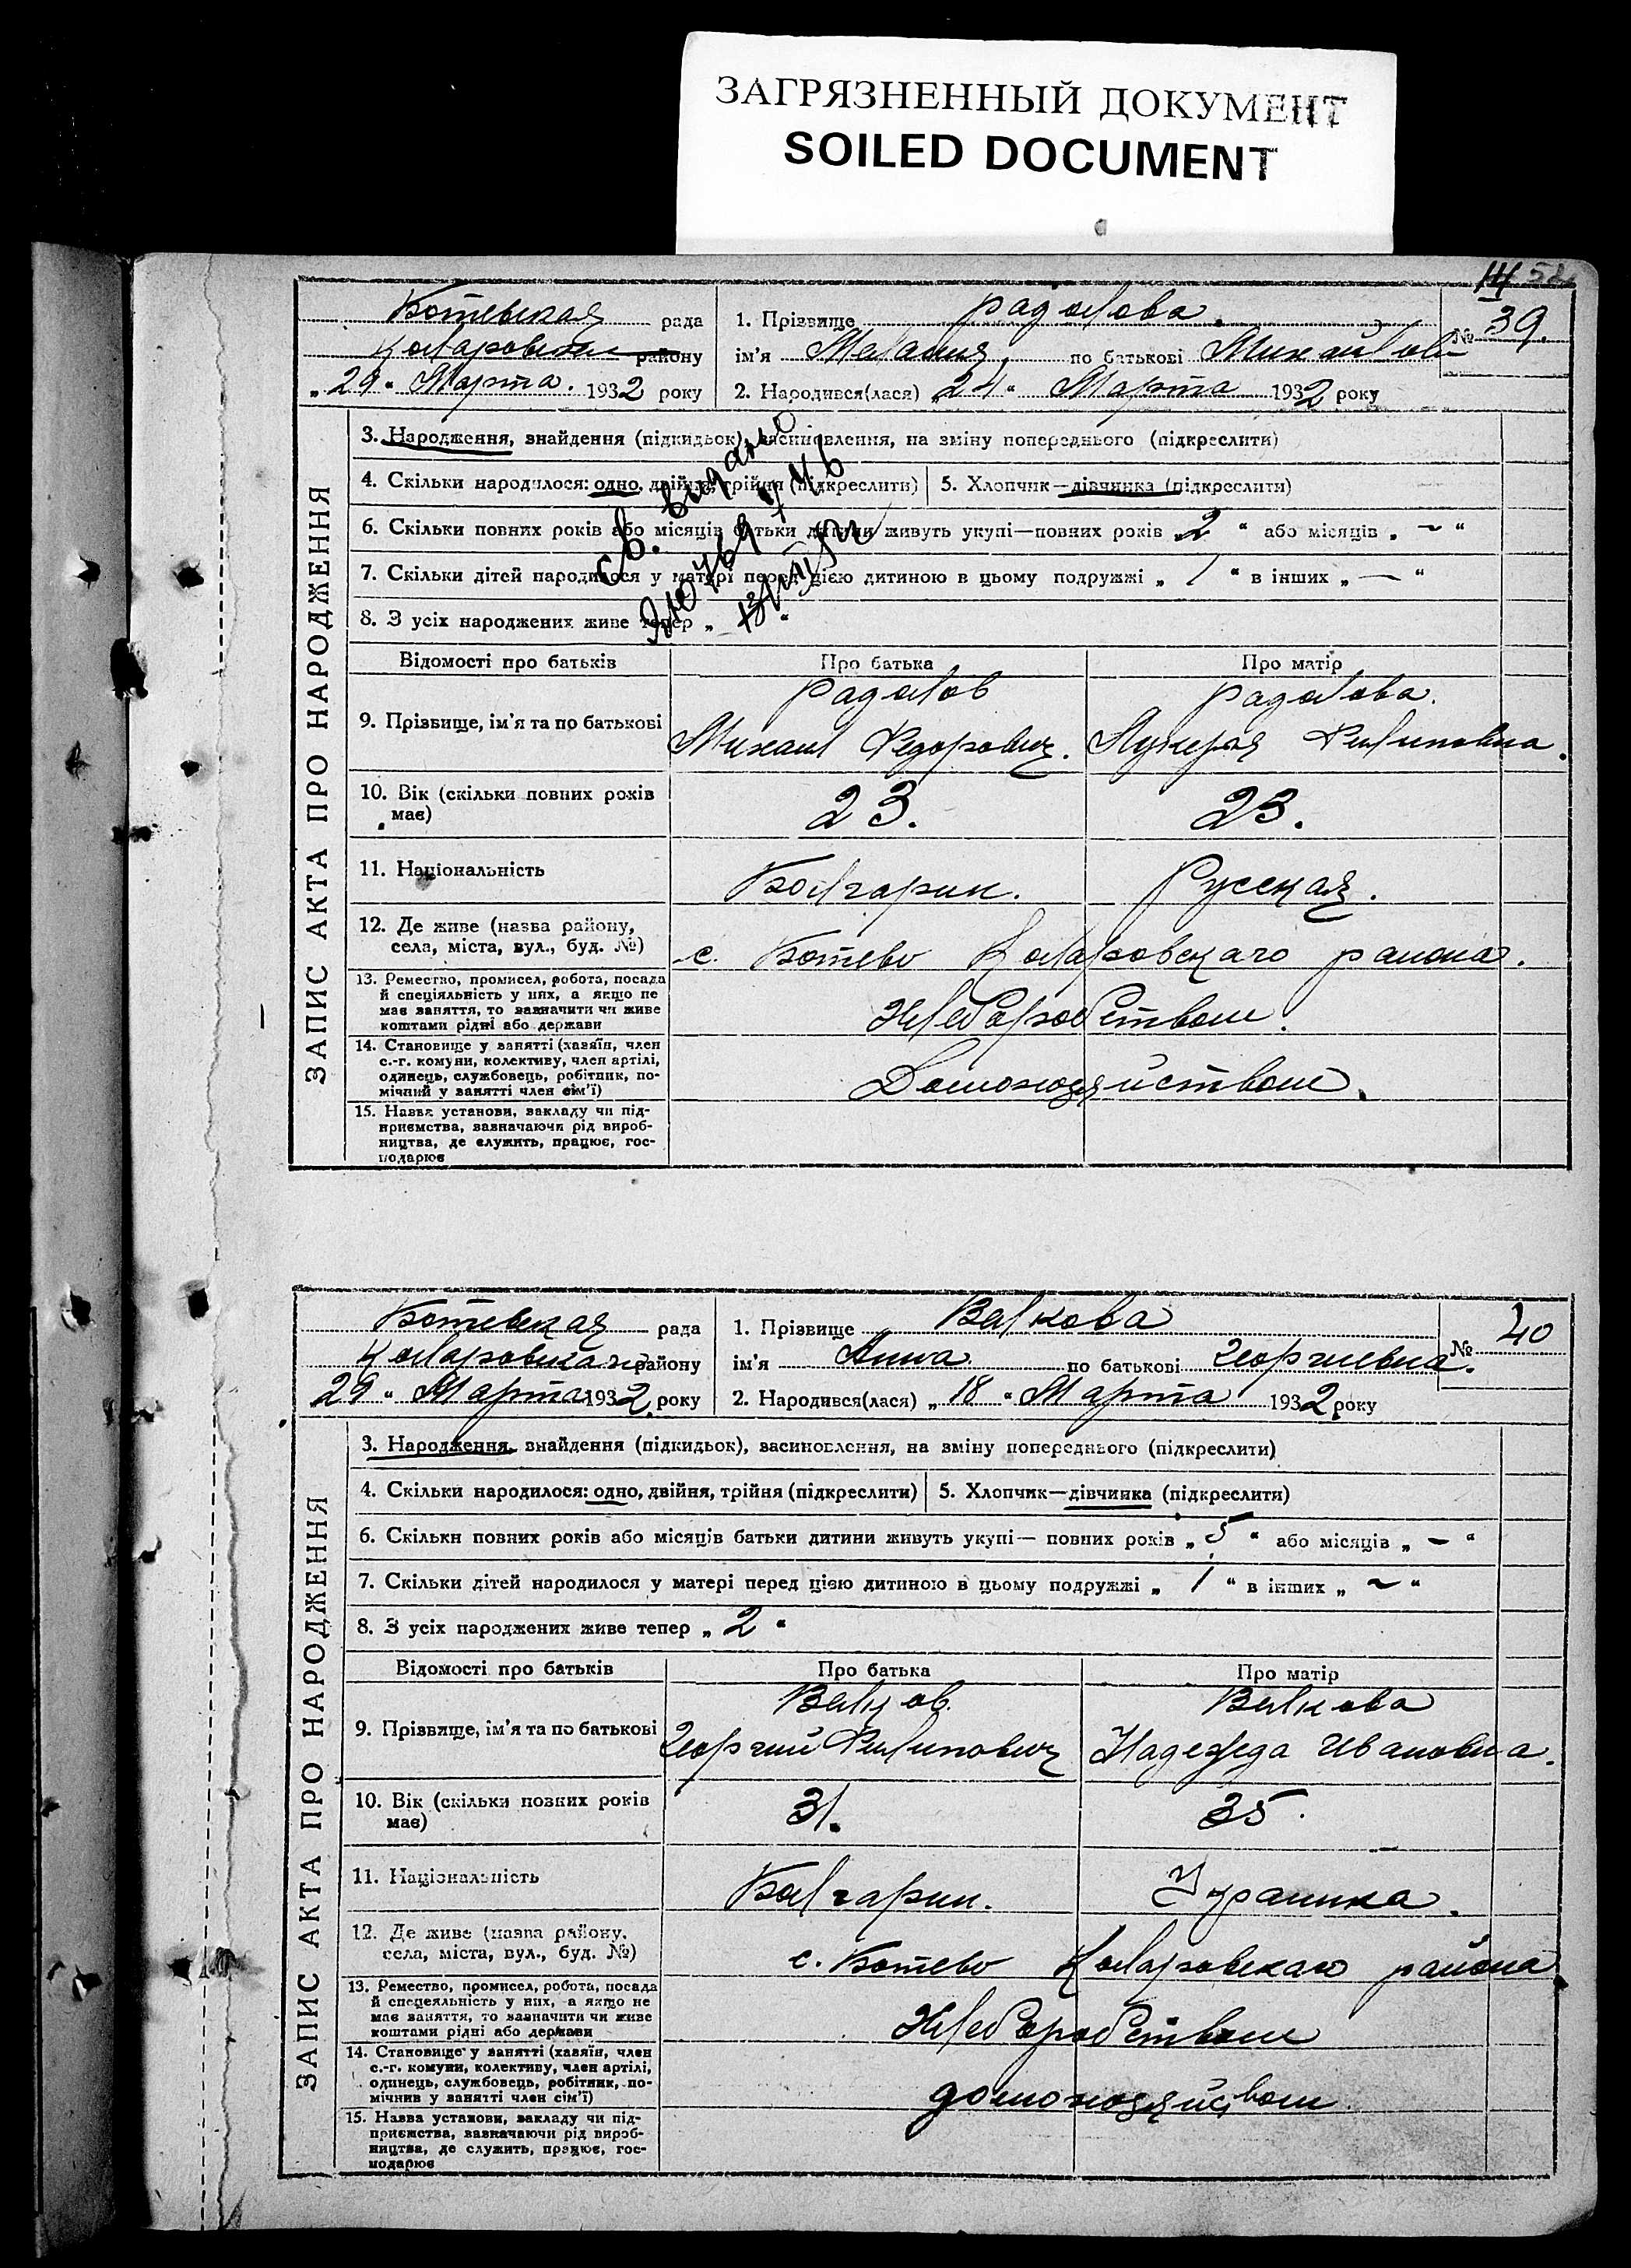 ЗАГРЯЗНЕННЫЙ ДОКУМЕНТ
SOILED DOCUMENT
Ботевская рада
Коларовская району
„29“ Марта. 1932 року
1. Прізвище Радолова
№ 39.
ім'я Мелания, по батькові Михайлов
2. Народився(лася) „24“ Марта 1932 року
ЗАПИС АКТА ПРО НАРОДЖЕННЯ
3. Народження, знайдення (підкидьок), засиновлення, на зміну попереднього (підкреслити)
4. Скільки народилося: одно, двійня, трійня (підкреслити)
5. Хлопчик—дівчинка (підкреслити)
6. Скільки повних років або місяців батьки дитини живуть укупі—повних років „2“ або місяців „—“
7. Скільки дітей народилося у матері перед цією дитиною в цьому подружжі „1“ в інших „—“
8. З усіх народжених живе тепер „ “
св. видано
Відомості про батьків
Про батька
Про матір
9. Прізвище, ім'я та по батькові
Радолов
Михаил Федорович.
Радолова.
Лукерья Филиповна.
10. Вік (скільки повних років має)
23.
23.
11. Національність
Болгарин.
Русская.
12. Де живе (назва району, села, міста, вул., буд. №)
с. Ботево Коларовскаго района.
13. Ремество, промисел, робота, посада й спеціяльність у них, а якщо не має заняття, то зазначити чи живе коштами рідні або держави
Хлебороством.
14. Становище у занятті (хазяїн, член с.-г. комуни, колективу, член артілі, одинець, службовець, робітник, помічний у занятті член сім'ї)
Домохозяйством.
15. Назва установи, закладу чи підприємства, зазначаючи рід виробництва, де служить, працює, господарює
Ботевская рада
Коларовскаго району
29“ Марта 1932 року
1. Прізвище Валкова
№ 40
ім'я Анна по батькові Георгиевна.
2. Народився(лася) „18“ Марта 1932 року
ЗАПИС АКТА ПРО НАРОДЖЕННЯ
3. Народження, знайдення (підкидьок), засиновлення, на зміну попереднього (підкреслити)
4. Скільки народилося: одно, двійня, трійня (підкреслити)
5. Хлопчик—дівчинка (підкреслити)
6. Скільки повних років або місяців батьки дитини живуть укупі— повних років „5“ або місяців „—“
7. Скільки дітей народилося у матері перед цією дитиною в цьому подружжі „1“ в інших „~“
8. З усіх народжених живе тепер „2“
Відомості про батьків
Про батька
Про матір
9. Прізвище, ім'я та по батькові
Валков.
Георгий Филипович
Валкова
Надежда Ивановна.
10. Вік (скільки повних років має)
31.
35.
11. Національність
Болгарин.
Украинка.
12. Де живе (назва району, села, міста, вул., буд. №)
с. Ботево Коларовскаго района
13. Ремество, промисел, робота, посада й спецеяльність у них, а якщо не має заняття, то зазначити чи живе коштами рідні або держави
Хлебороством
14. Становище у занятті (хазяїн, член с.-г. комуни, колективу, член артілі, одинець, службовець, робітник, помічнив у занятті член сім'ї)
домохозяйством
15. Назва установи, закладу чи підприємства, зазначаючи рід виробництва, де служить, працює, господарює